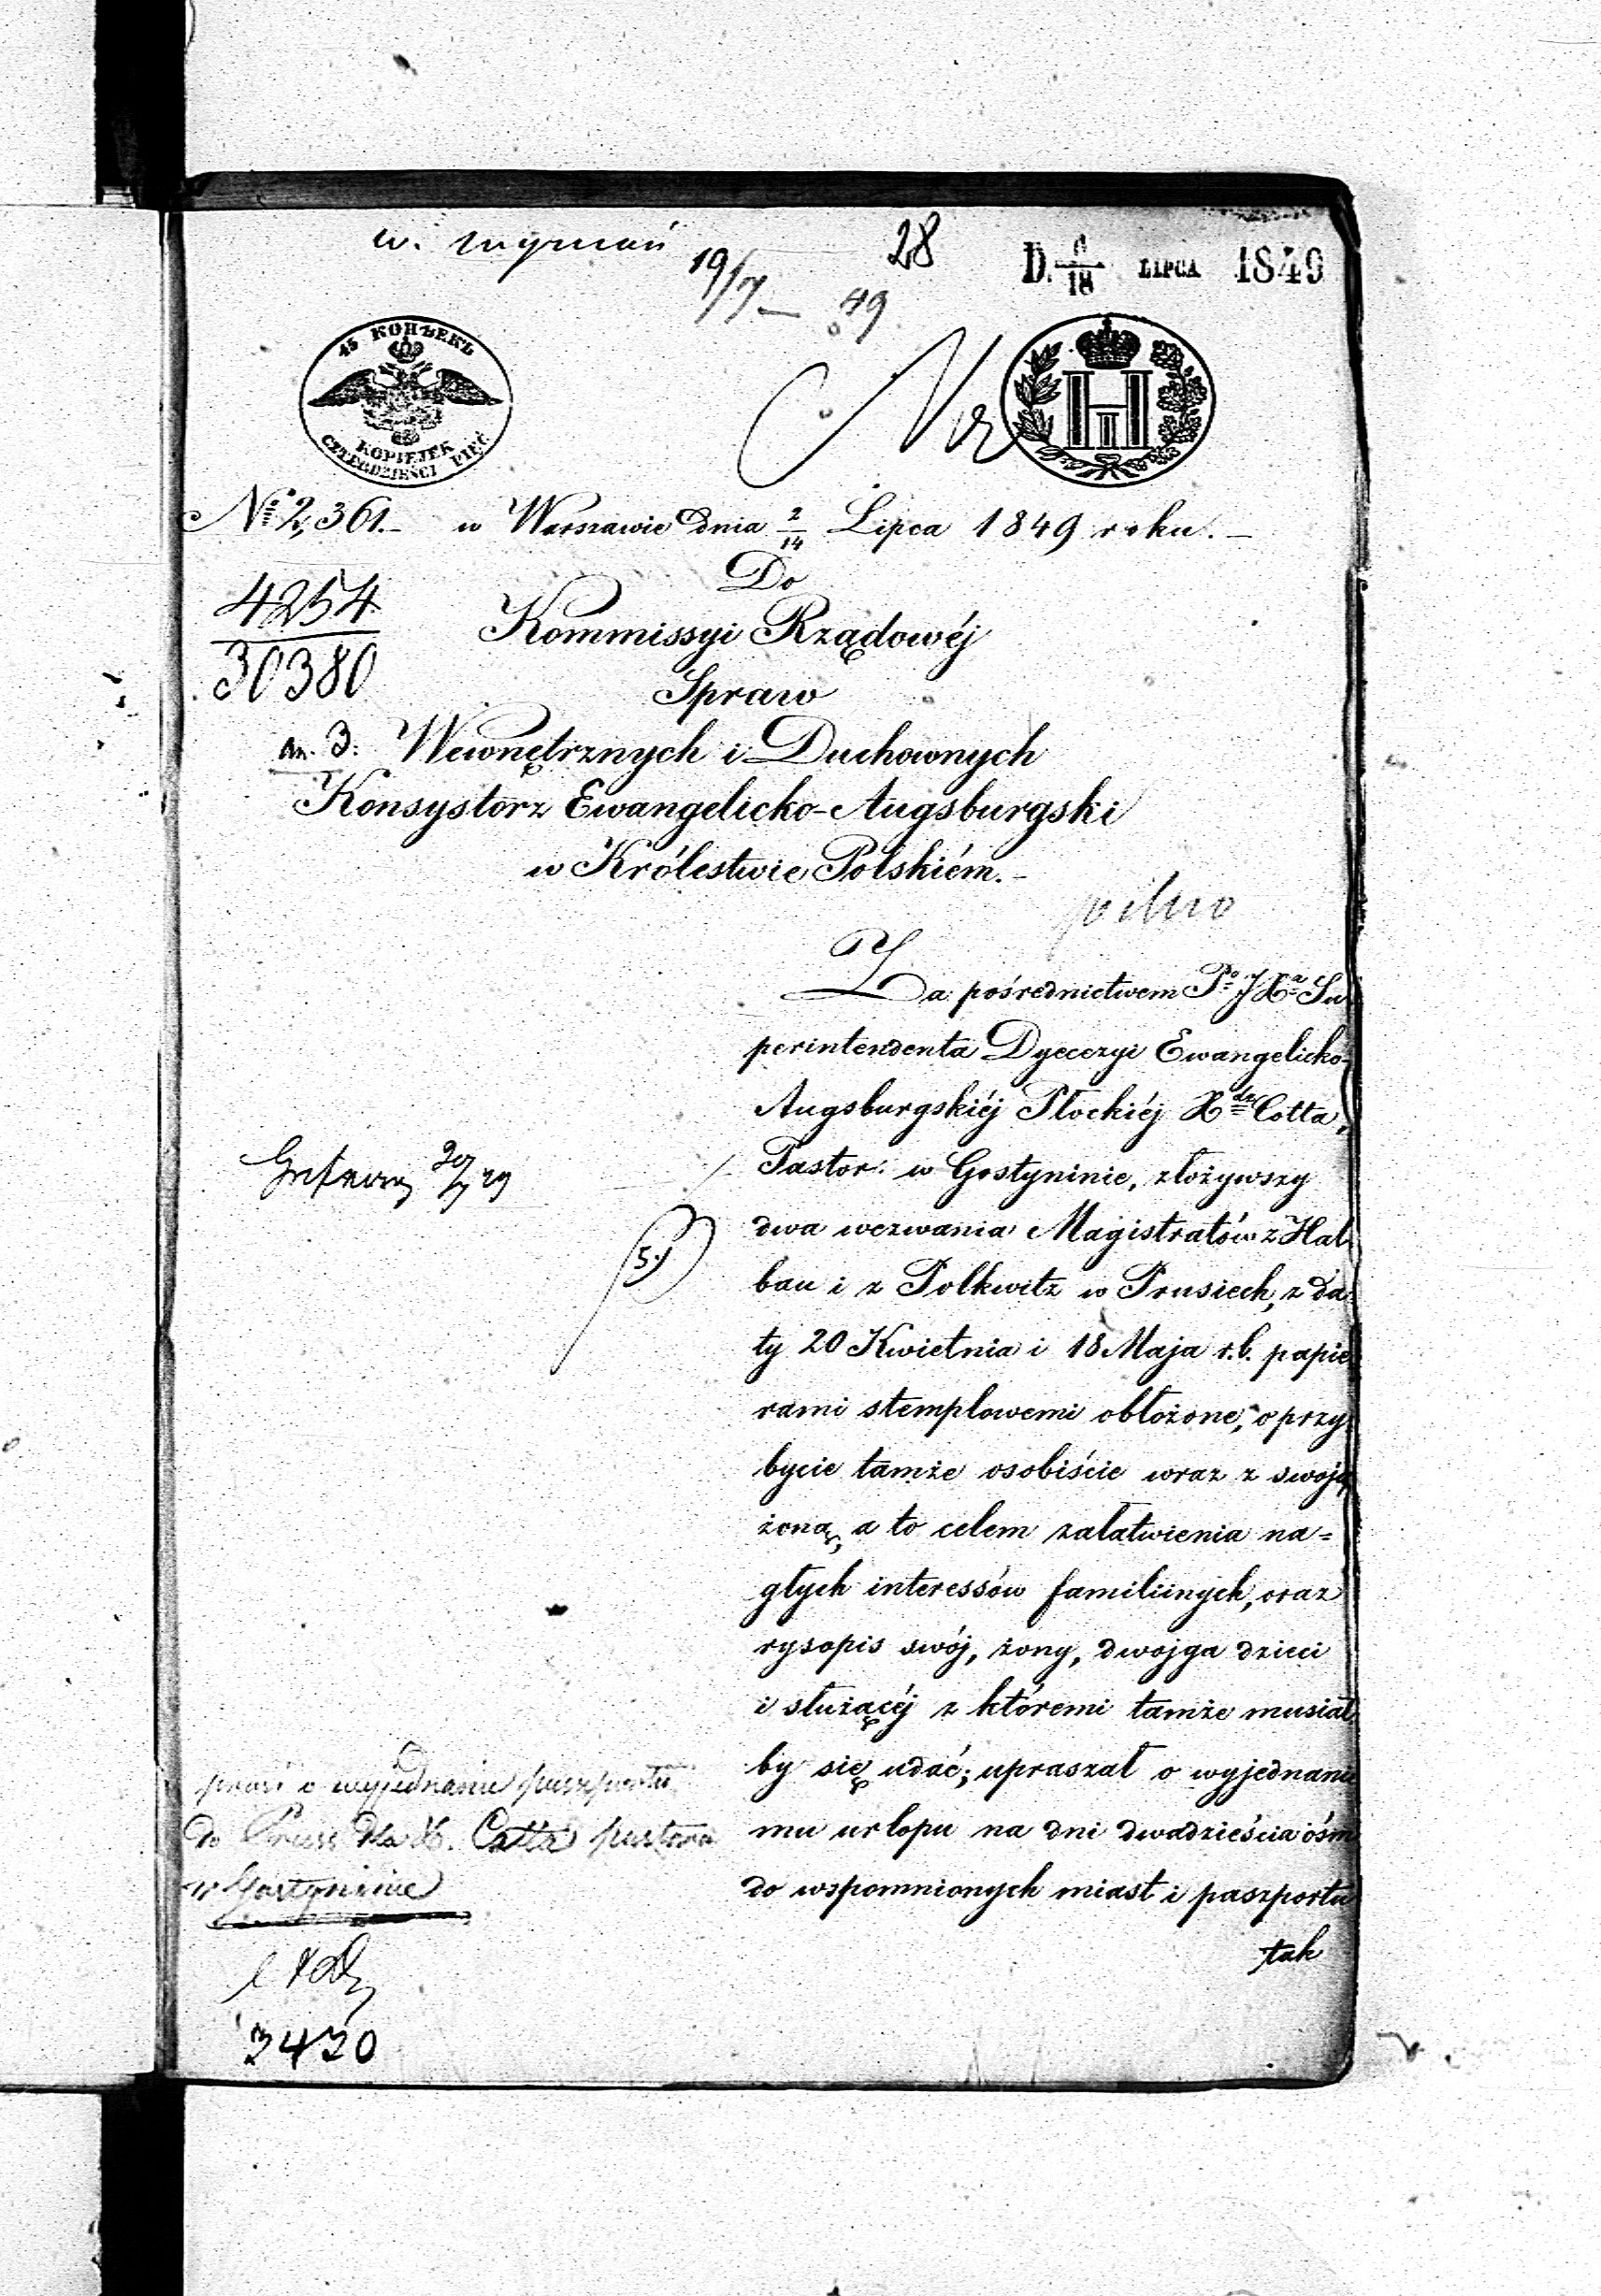 28
19/7 — 49
D. 6/18 LIPCA 1849
45 КОПѢЕКЪ
KOPIEJEK
CZTERDZIEŚCI PIĘĆ
№ 2,361.- w Warszawie dnia 2/14 Lipca 1849 roku.-
Do
4254
30380
Kommissyi Rządowéj
Spraw
Wewnętrznych i Duchownych
Konsystorz Ewangelicko-Augsburgski
w Królestwie Polskiém.-
pilno
Za pośrednictwem Po JXa Su
perintendenta Dyecezyi Ewangelicko-
Augsburgskiéj Płockiéj Xdz Cotta,
Pastor w Gostyninie, złożywszy
dwa wezwania Magistratów z Hal
bau i z Polkwitz w Prusiech, z da
ty 20 Kwietnia i 18 Maja r.b. papie
rami stemplowemi obłożone, o przy
bycie tamże osobiście wraz z swoją
żoną, a to celem załatwienia na=
głych interessów familiinych, oraz
rysopis swój, żony, dwojga dzieci
i służącéj z któremi tamże musiał
by się udać; upraszał o wyjednanie
mu urlopu na dni dwadzieścia ośm
do wspomnionych miast i paszportu
tak
prosi o wyjednanie paszportu
do Pruss dla X. Cotta pastora
w Gostyninie
3430